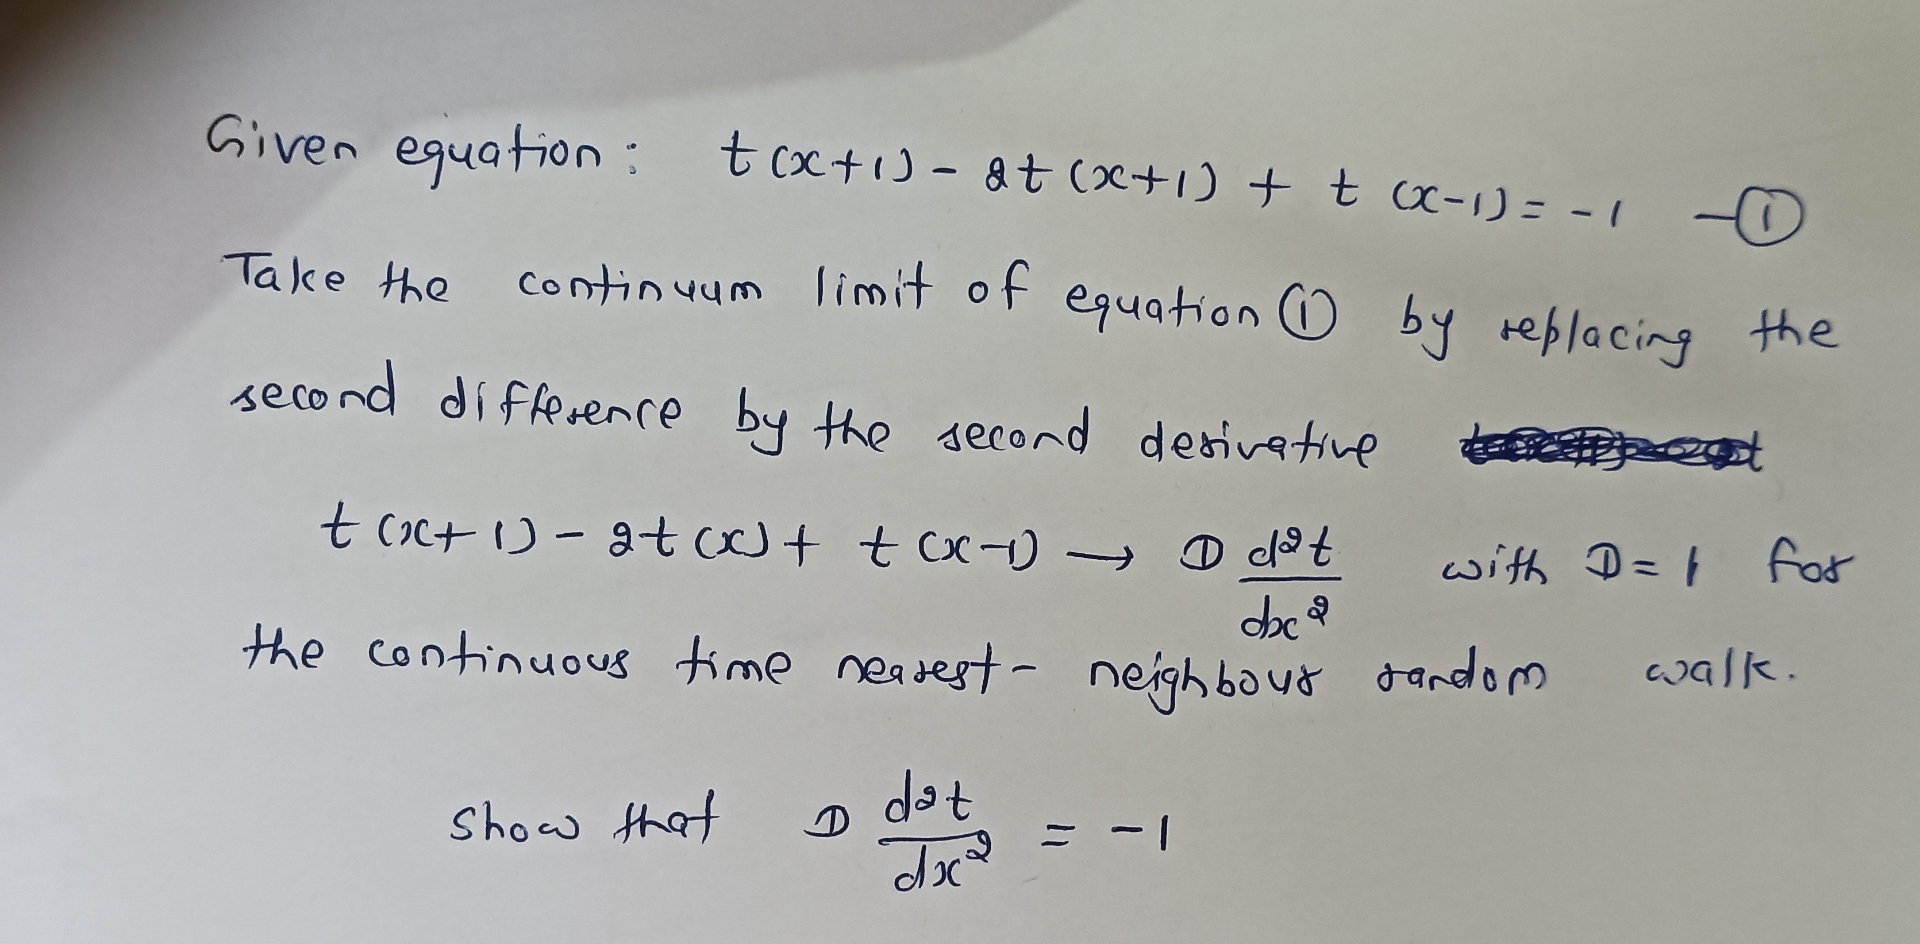 Given equation: t(x+1) - 2t(x+1) + t(x-1) = -1 —①
Take the continuum limit of equation ① by replacing the
second difference by the second derivative
t(x+1) - 2t(x) + t(x-1) → D d²t/dx² with D = 1 for
the continuous time nearest-neighbour random walk.
Show that D d²t/dx² = -1